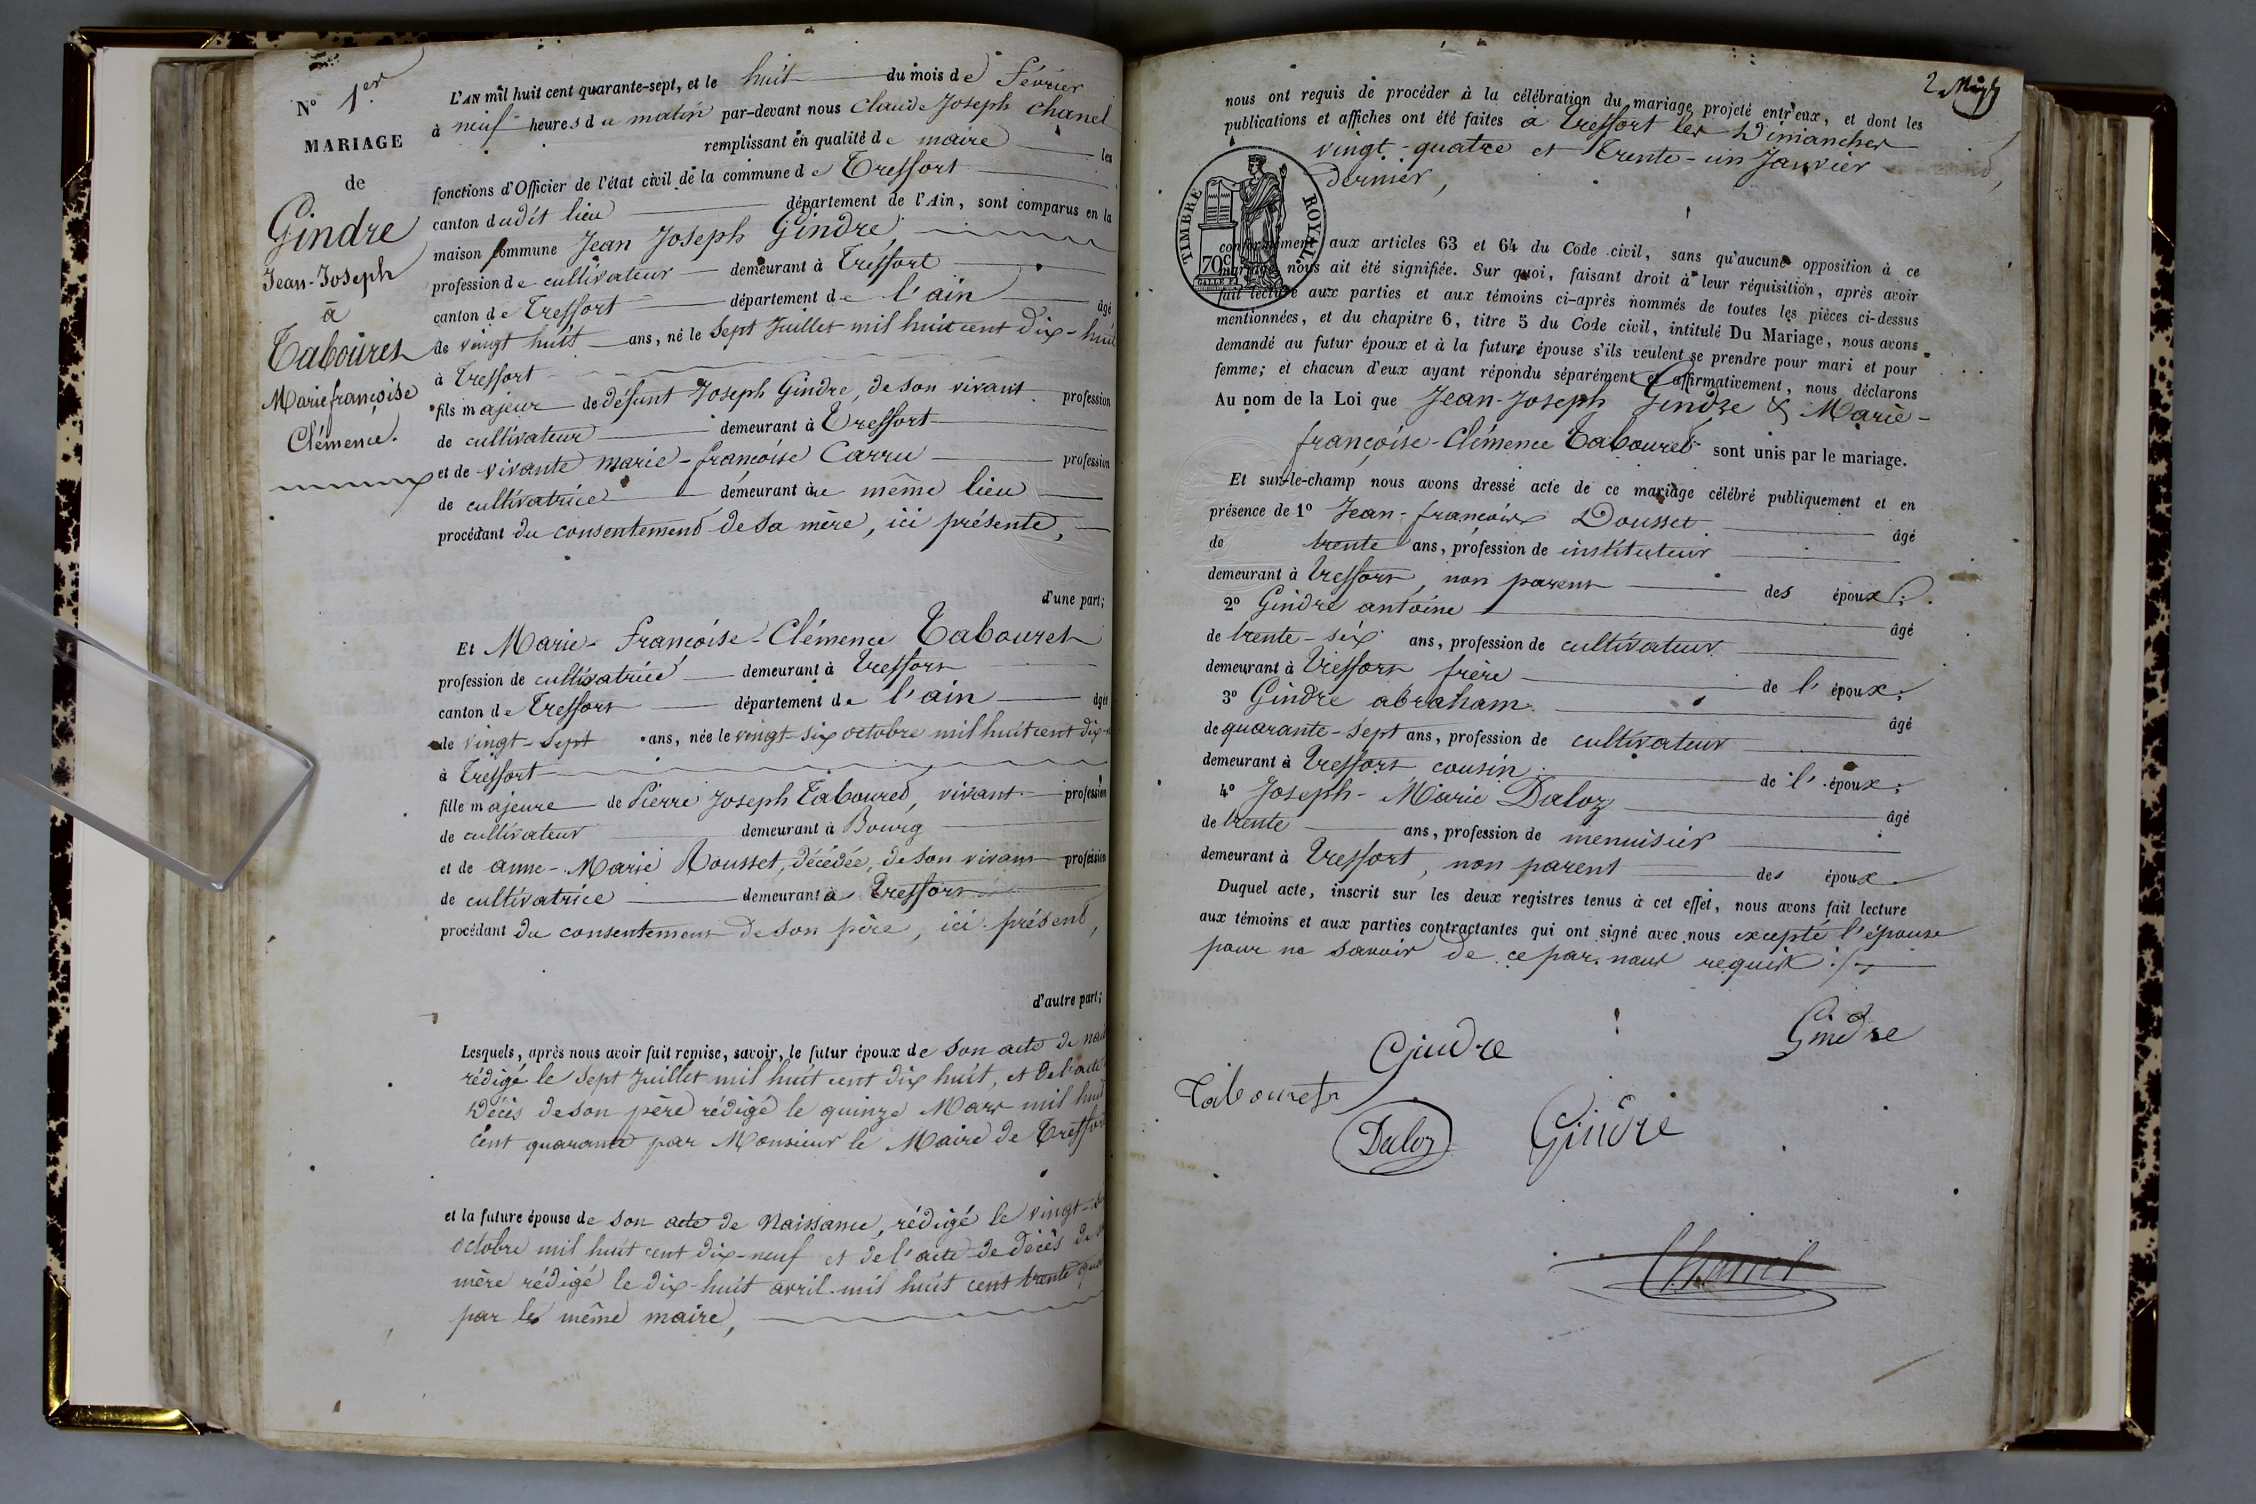 N° 1er
MARIAGE
de
Gindre
Jean-Joseph
à
Tabouret
Marie françoise
Clémence.
L'AN mil huit cent quarante-sept, et le huit du mois de Février
à neuf heures du matin par-devant nous Claude Joseph Chanel
remplissant en qualité de maire les
fonctions d'Officier de l'état civil de la commune de Treffort
canton dudit lieu département de l'Ain, sont comparus en la
maison commune Jean Joseph Gindre
profession de cultivateur demeurant à Treffort
canton de Treffort département de l'ain âgé
de vingt huit ans, né le sept Juillet mil huit cent dix-huit
à Treffort
fils majeur de défunt Joseph Gindre, de son vivant profession
de cultivateur demeurant à Treffort
et de vivante marie-françoise Carru profession
de cultivatrice demeurant au même lieu
procédant du consentement de sa mère, ici présente,
d'une part;
Et Marie-Françoise-Clémence Tabouret
profession de cultivatrice demeurant à Treffort
canton de Treffort département de l'ain âgée
de vingt-sept ans, née le vingt-six octobre mil huit cent dix-
à Treffort
fille majeure de Pierre Joseph Tabouret, vivant profession
de cultivateur demeurant à Bourg
et de anne-Marie Rousset, décédée, de son vivant profession
de cultivatrice demeurant à Treffort
procédant du consentement de son père, ici présent,
d'autre part;
Lesquels, après nous avoir fait remise, savoir, le futur époux de son acte de
rédigé le sept Juillet mil huit cent dix huit, et de l'acte
décès de son père rédigé le quinze Mars mil huit
cent quarante par Monsieur le Maire de Treffort
et la future épouse de son acte de Naissance, rédigé le vingt-
octobre mil huit cent dix-neuf et de l'acte de décès de
mère rédigé le dix-huit avril mil huit cent trente
par le même maire,
2
nous ont requis de procéder à la célébration du mariage projeté entr'eux, et dont les
publications et affiches ont été faites à Treffort les Dimanches
vingt-quatre et trente-un Janvier
dernier,
TIMBRE ROYAL
70c
conformément aux articles 63 et 64 du Code civil, sans qu'aucune opposition à ce
mariage nous ait été signifiée. Sur quoi, faisant droit à leur réquisition, après avoir
fait lecture aux parties et aux témoins ci-après nommés de toutes les pièces ci-dessus
mentionnées, et du chapitre 6, titre 5 du Code civil, intitulé Du Mariage, nous avons
demandé au futur époux et à la future épouse s'ils veulent se prendre pour mari et pour
femme; et chacun d'eux ayant répondu séparément et affirmativement, nous déclarons
Au nom de la Loi que Jean-Joseph Gindre & Marie-
françoise-Clémence Tabouret sont unis par le mariage.
Et sur-le-champ nous avons dressé acte de ce mariage célébré publiquement et en
présence de 1° Jean-françois Dousset âgé
de trente ans, profession de instituteur
demeurant à Treffort, non parent des époux;
2° Gindre antoine âgé
de trente-six ans, profession de cultivateur
demeurant à Treffort frère de l'époux;
3° Gindre abraham âgé
de quarante-sept ans, profession de cultivateur
demeurant à Treffort cousin de l'époux;
4° Joseph-Marie Daloz âgé
de trente ans, profession de menuisier
demeurant à Treffort, non parent des époux.
Duquel acte, inscrit sur les deux registres tenus à cet effet, nous avons fait lecture
aux témoins et aux parties contractantes qui ont signé avec nous excepté l'épouse
pour ne savoir de ce par nous requis
Gindre
Gindre
Tabouret
Daloz
Gindre
Chanel